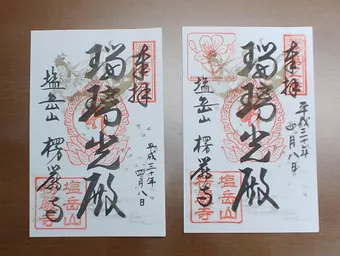 奉拝
瑠璃光殿
平成三十年
四月八日
塩岳山 楞厳寺
塩岳山
奉拝
瑠璃光殿
平成三十一年
四月八日
塩岳山 楞厳寺
塩岳山